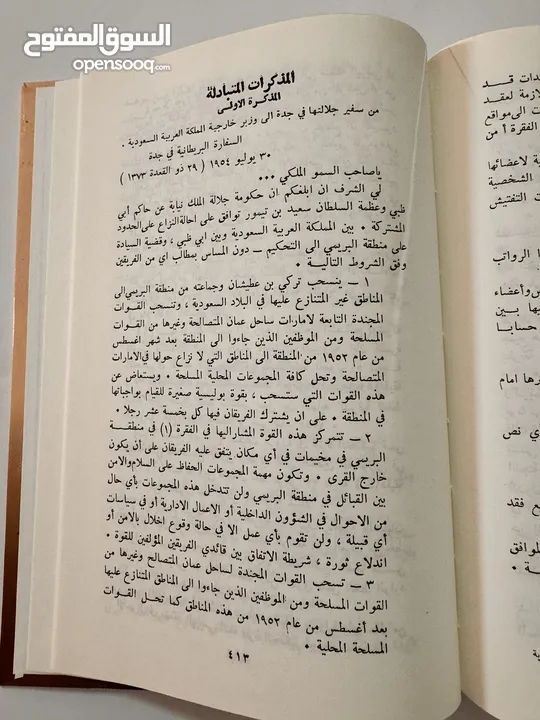 السوق المفتوح
opensooq.com
المذكرات المتبادلة
المذكرة الاولى
من سفير جلالتها في جدة الى وزير خارجية المملكة العربية السعودية .
السفارة البريطانية في جدة
٣٠ يوليو ١٩٥٤ ( ٢٩ ذو القعدة ١٣٧٣ )
ياصاحب السمو الملكي ...
لي الشرف ان ابلغكم ان حكومة جلالة الملك نيابة عن حاكم أبي
ظبي وعظمة السلطان سعيد بن تيمور توافق على احالة النزاع على الحدود
المشتركة . بين المملكة العربية السعودية وبين ابي ظبي ، وقضية السيادة
على منطقة البريمي الى التحكيم – دون المساس بمطالب اي من الفريقين
وفق الشروط التالية .
١ – ينسحب تركي بن عطيشان وجماعته من منطقة البريمي الى
المناطق غير المتنازع عليها في البلاد السعودية ، وتنسحب القوات
المجندة التابعة لامارات ساحل عمان المتصالحة وغيرها من القوات
المسلحة ومن الموظفين الذين جاءوا الى المنطقة بعد شهر اغسطس
من عام ١٩٥٢ من المنطقة الى المناطق التي لا نزاع حولها في الامارات
المتصالحة وتحل كافة المجموعات المحلية المسلحة . ويستعاض عن
هذه القوات التي ستسحب ، بقوة بوليسية صغيرة للقيام بواجباتها
في المنطقة . على ان يشترك الفريقان فيها كل بخمسة عشر رجلا .
٢ – تتمركز هذه القوة المشار اليها في الفقرة (١) في منطقة
البريمي في مخيمات في أي مكان يتفق عليه الفريقان على أن يكون
خارج القرى . وتكون مهمة المجموعات الحفاظ على السلام والامن
بين القبائل في منطقة البريمي ولن تتدخل هذه المجموعات بأي حال
من الاحوال في الشؤون الداخلية أو الاعمال الادارية أو في سياسات
أي قبيلة ، ولن تقوم بأي عمل الا في حالة وقوع اخلال بالامن أو
اندلاع ثورة ، شريطة الاتفاق بين قائدي الفريقين المؤلفين للقوة .
٣ – تسحب القوات المجندة لساحل عمان المتصالح وغيرها من
القوات المسلحة ومن الموظفين الذين جاءوا الى المناطق المتنازع عليها
بعد أغسطس من عام ١٩٥٢ من هذه المناطق كما تحل القوات
المسلحة المحلية .
٤١٣
دات قد
لازمة لعقد
ت الى مواقع
الفقرة أ من
ية لاعضائها
الشخصية
ت التفتيش
ا الرواتب
ض وأعضاء
يها بين
حسابا
رها امام
ي نص
ع فقد
الموافق